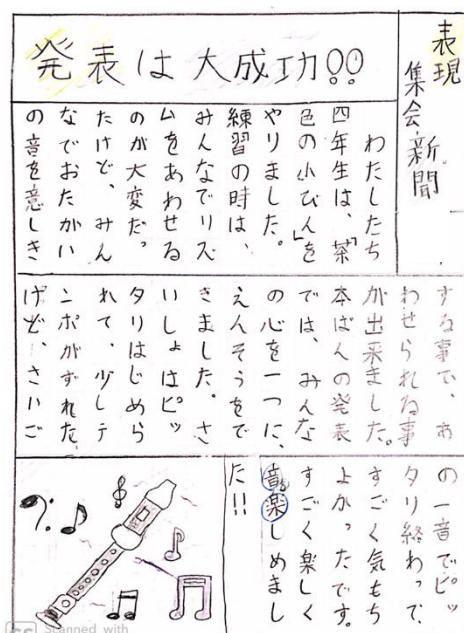 表現
集会新聞
発表は大成功!!
わたしたち
四年生は、「茶
色の小びん」を
やりました。
練習の時は、
みんなでリズ
ムをあわせる
のが大変だっ
たけど、みん
なでおたがい
の音を意しき
する事で、あ
わせられる事
が出来ました。
本ばんの発表
では、みんな
の心を一つに、
えんそうをで
きました。さ
いしょはピッ
タリはじめら
れて、少しテ
ンポがずれた
けど、さいご
の一音でピッ
タリ終わって、
すごく気もち
よかったです。
すごく楽しく
音楽しめまし
た!!
CS Scanned with